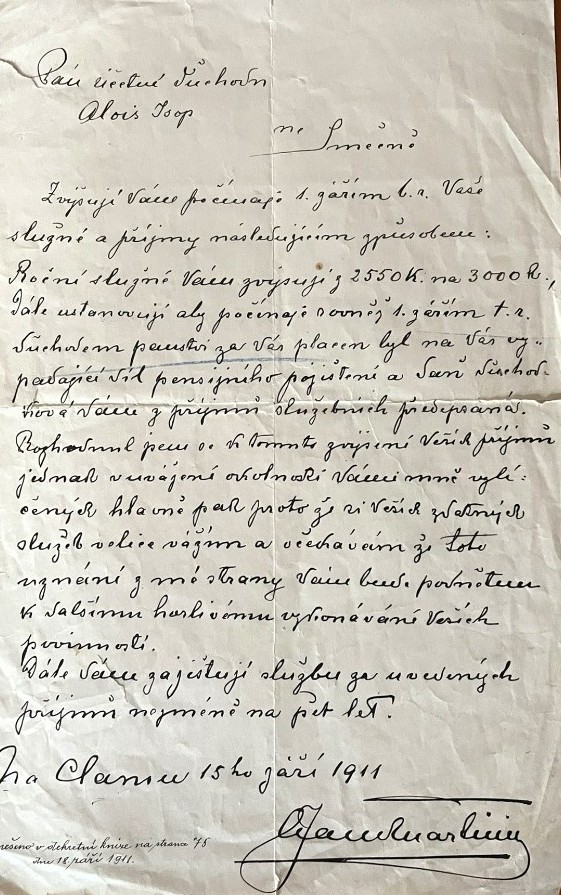 Pán účetní důchodu
Alois Isop
na Smečně
Zvyšuji Vám počínaje 1. zářím b.r. Vaše
služné a příjmy následujícím způsobem:
Roční služné Vám zvyšuji z 2550K. na 3000 K.,
Dále ustanovuji aby počínaje rovněž 1. zářím t.r.
důchodem panství za Vás placen byl na Vás vy-
padající díl pensijního pojištění a daň důchod-
ková Vám z příjmů služebních předepsaná.
Rozhodnul jsem se k tomuto zvýšení Vašich příjmů
jednak v uvážení okolností Vámi mně vylí-
čených hlavně pak proto že si Vašich zdatných
služeb velice vážím a očekávám že toto
uznání z mé strany Vám bude podnětem
k dalšímu horlivému vykonávání Vašich
povinností.
Dále Vám zajištuji službu za uvedených
příjmů nejméně na pět let.
Na Clamu 15ho září 1911
Clam Martinic
v dekretní knize na straně 75
dne 18 září 1911.